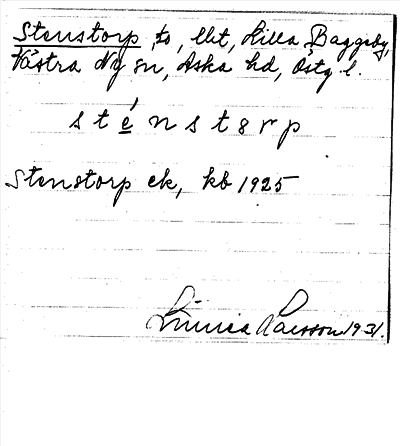 Stenstorp, to, utt, Lilla Baggeby,
Västra Ny sn, Aska hd, Östg l.
sténstorp
Stenstorp ek, kb 1925
Linnea Larsson 1931.